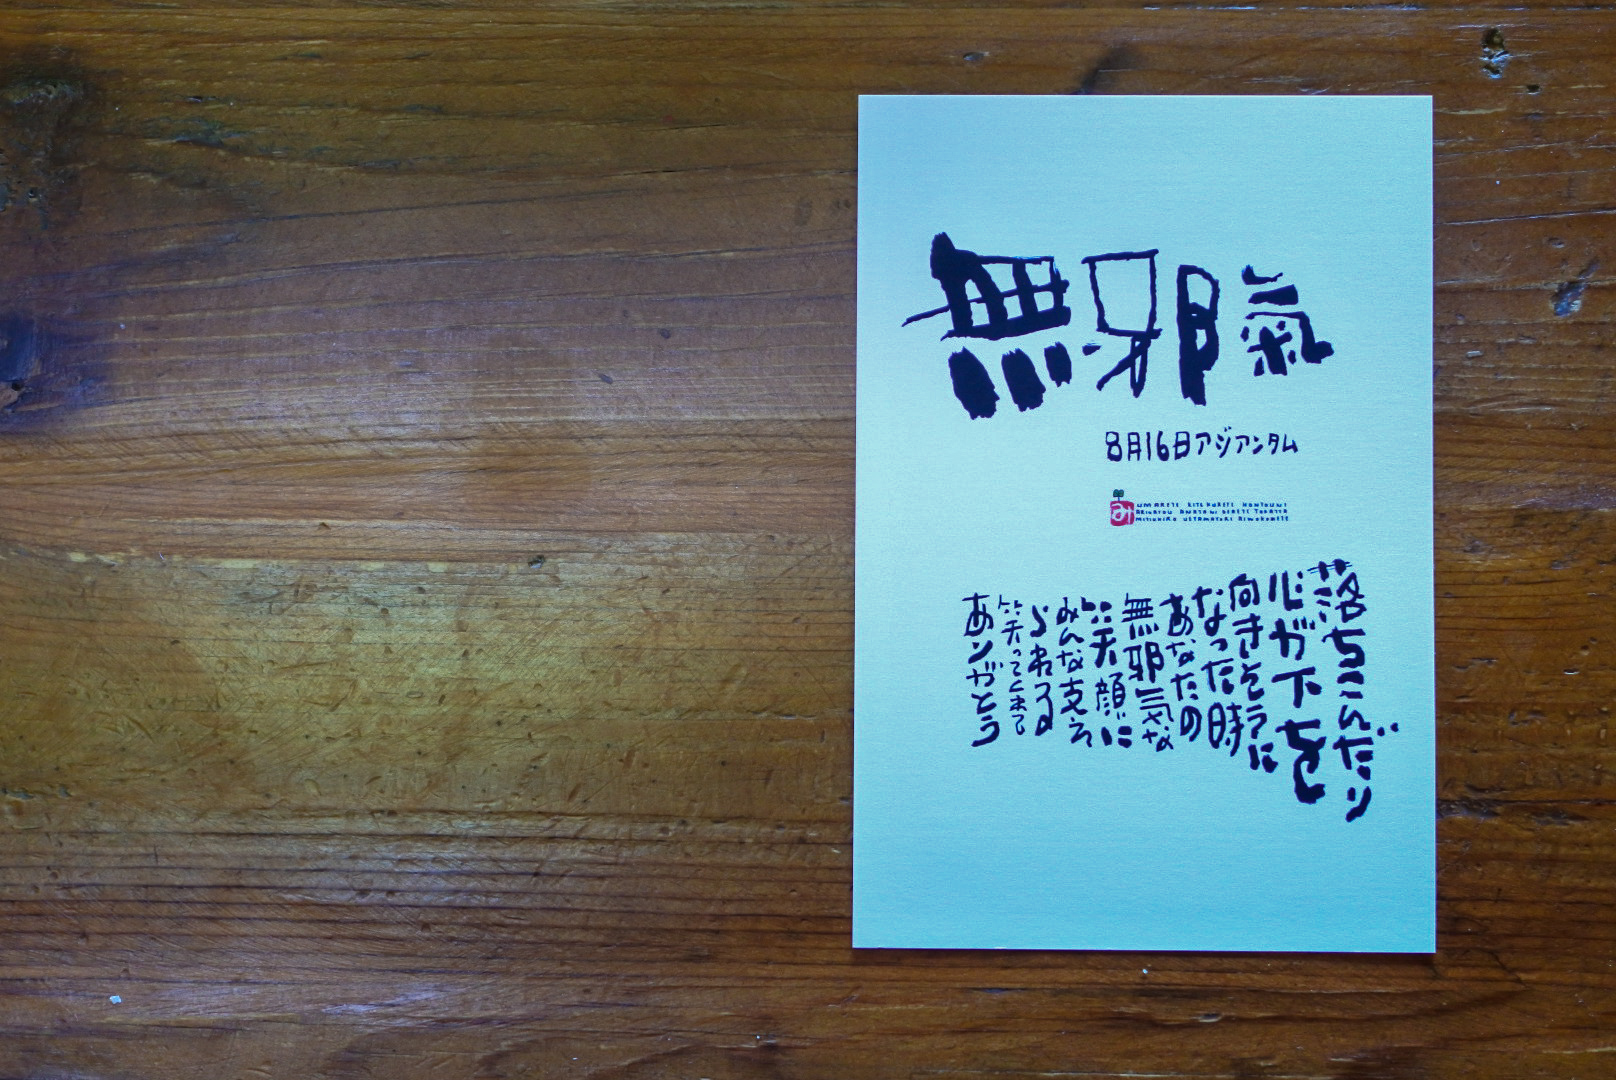 無邪氣
8月16日アジアンタム
み
UMARETE KITEKURETE HONTOUNI
ARIGATOU ANATANI DEAETE YOKATTA
落ちこんだり
心が下をし
向きそうに
なった時
あなたの
無邪気な
笑顔に
みんな支え
られてる
笑ってくれて
ありがとう